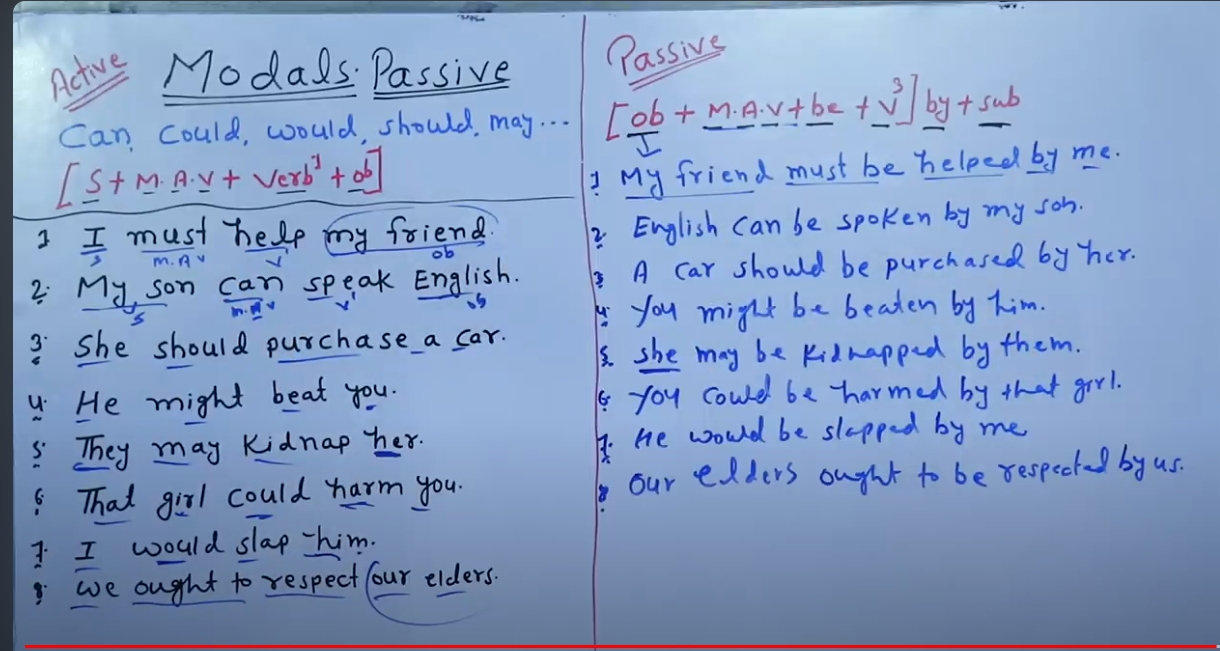 Active
Modals Passive
Can, Could, would, should, may...
[S + M.A.V + Verb¹ + ob]
1 I must help my friend.
S M.A V V ob
2. My son can speak English.
S M.A V V¹ ob
3. She should purchase a car.
4. He might beat you.
5. They may kidnap her.
6. That girl could harm you.
7. I would slap him.
8. we ought to respect our elders.
Passive
[ob + M.A.V + be + V³] by + sub
1 My friend must be helped by me.
2. English can be spoken by my son.
3 A car should be purchased by her.
4. You might be beaten by him.
5. she may be kidnapped by them.
6. You could be harmed by that girl.
7. He would be slapped by me
8 Our elders ought to be respected by us.